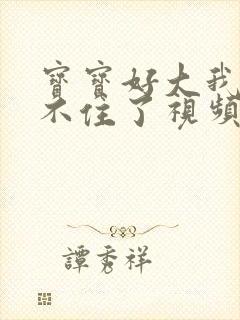 寶寶好大我
不住了視頻
譚秀祥